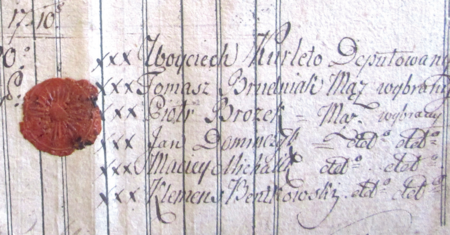 17 10⁸
xxx Woyciech Kurleto Deputowany
xxx Tomasz Brudniak Mąz wybrany
xxx Piotr Brozek = Mąz wybrany
xxx Jan Dominczyk = dtto dtto
xxx Maciey Michalik dtto dtto
xxx Klemens Bentkowski dtto dtto